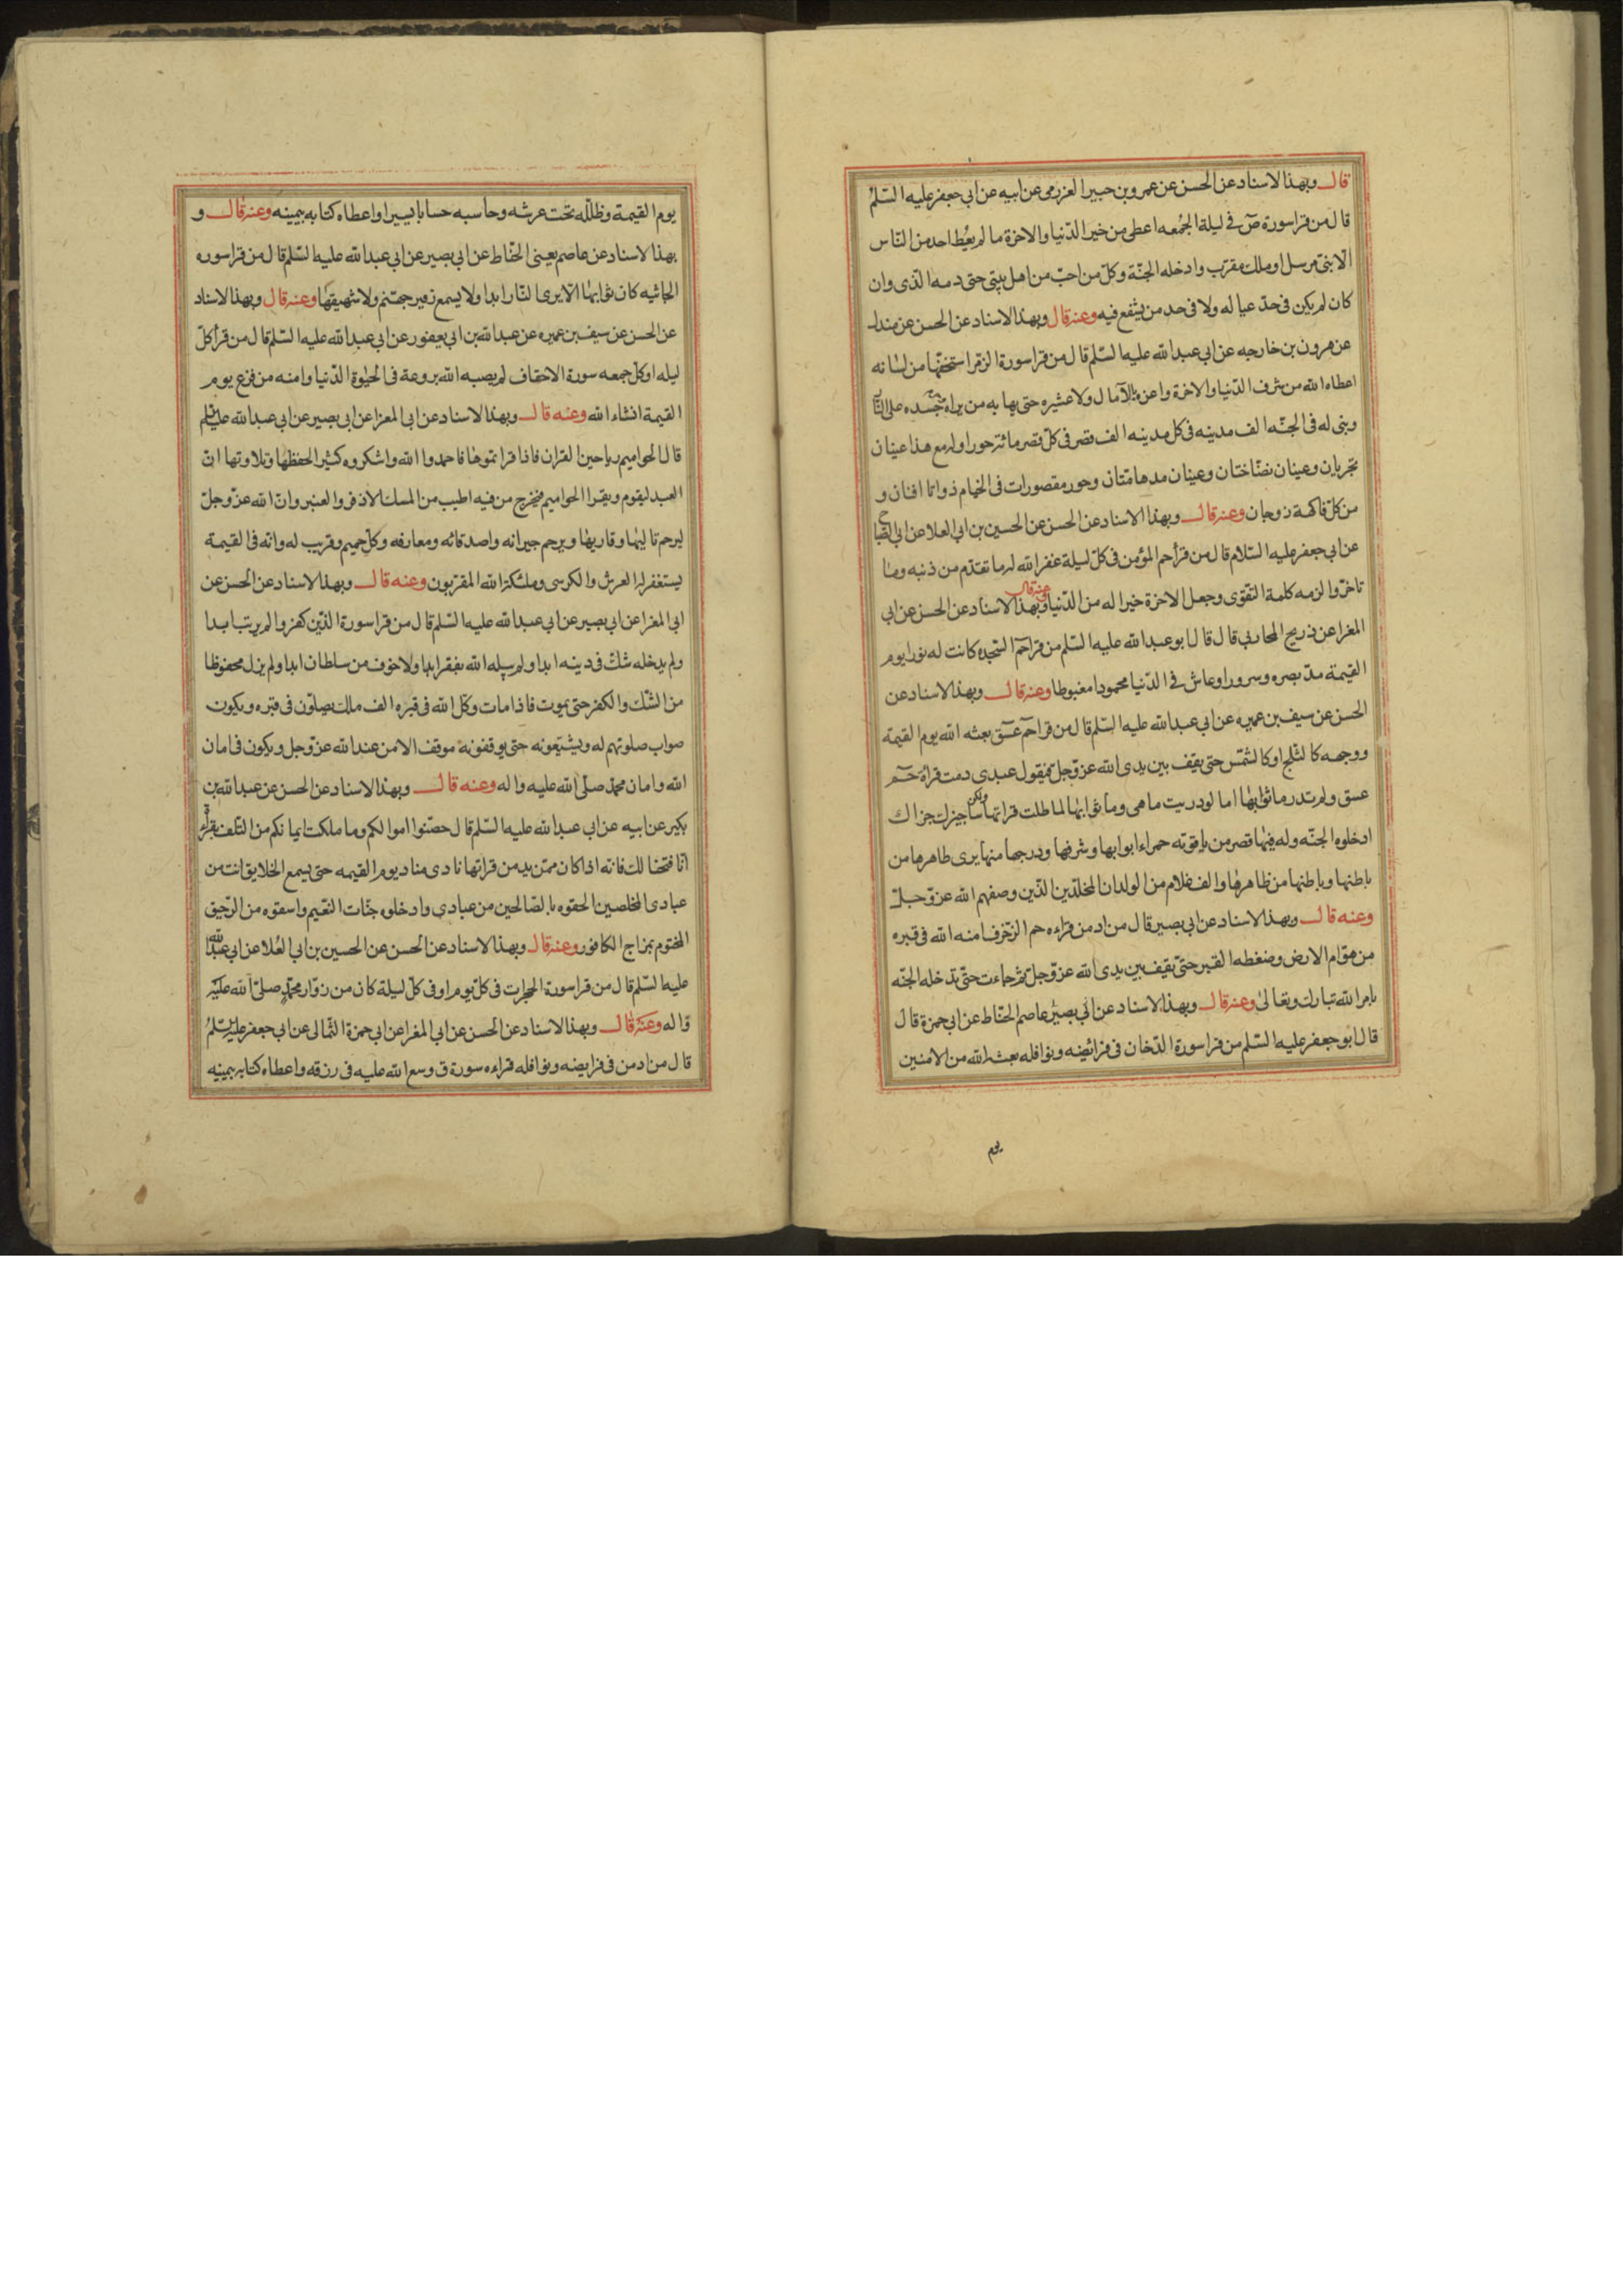 قال وبهذا الاسناد عن الحسن عن عمرو بن جبير العزرمى عن ابيه عن ابي جعفر عليه السّلم
قال من قرا سورة صۤ فى ليلة الجمُعه اعطى من خير الدّنيا والاخرة ما لم يعُط احد من النّاس
الا نبىّ مرسل او ملك مقرّب وادخله الجنّة وكلّ من احبّ من اهل بيتى حتى دمه الذى وان
كان لم يكن فى حدّ عياله ولا فى حد من يشفع فيه وعنه قال وبهذا الاسناد عن الحسن عن مندل
عن هرون بن خارجه عن ابي عبدالله عليه السّلم قال من قرا سورة الزمر استخفّها من لسانه
اعطاه الله من شرف الدّنيا والاخرة واعزه بلا مال ولا عشيره حتى يهابه من يراه جسده على النّار
وبنى له فى الجنّه الف مدينه فى كل مدينه الف قصر فى كلّ قصر مائة حورا وله مع هذا عينان
تجريان وعينان نضّاختان وعينان مدهامّتان وحور مقصورات فى الخيام ذواتا افنان و
من كلّ فاكهة زوجان وعنه قال وبهذا الاسناد عن الحسن عن الحسين بن ابي العلا عن ابي الصّباح
عن ابي جعفر عليه السّلام قال من قرأ حم المؤمن فى كلّ ليلة غفر الله له ما تقدّم من ذنبه وما
تاخرّ والزمه كلمة التقوى وجعل الاخرة خيرا له من الدّنيا وعنه قال وبهذا الاسناد عن الحسن عن ابي
المغرا عن ذريح المحاربى قال قال ابو عبدالله عليه السّلم من قرا حمۤ السّجده كانت له نورا يوم
القيمة مدّ بصره وسرورا وعاش فى الدّنيا محمودا مغبوطا وعنه قال وبهذا الاسناد عن
الحسن عن سيف بن عميره عن ابي عبدالله عليه السّلم قال من قرا حمۤ عسۤق بعثه الله يوم القيمة
ووجهه كالثلج او كالشمّس حتى يقف بين يدى الله عزّوجلّ فيقول عبدى دمت قراة حمۤ
عسق ولم تدر ما ثوابها اما لو دريت ما هى وما ثوابها لما طلت قراتها ولكن ساجيزك جزاك
ادخلوه الجنّه وله فيها قصر من ياقوته حمراء ابوابها وشرفها ودرجها منها يرى ظاهرها من
باطنها وباطنها من ظاهرها والف غلام من الولدان المخلّدين الذّين وصفهم الله عزّوجلّ
وعنه قال وبهذا الاسناد عن ابي بصير قال من ادمن قراءه حم الزّخرف امنه الله فى قبره
من هوّام الارض وضغطه القبر حتى يقف بين يدى الله عزّوجلّ ثم جاءت حتّى تدخله الجنّه
بامر الله تبارك وتعالى وعنه قال وبهذا الاسناد عن ابي بصير عاصم الحنّاط عن ابي حمزة قال
قال ابو جعفر عليه السّلم من قرا سورة الدّخان فى فرائضه ونوافله بعثه الله من الامنين
يوم
يوم القيمة وظلّله تحت عرشه وحاسبه حسابا يسيرا واعطاه كتابه بيمينه وعنه قال و
بهذا الاسناد عن عاصم يعنى الحنّاط عن ابي بصير عن ابي عبدالله عليه السّلم قال من قرا سوره
الجاثيه كان ثوابها الا يرى النّار ابدا ولا يسمع زفير جهنّم ولا شهيقها وعنه قال وبهذا الاسناد
عن الحسن عن سيف بن عميره عن عبدالله بن ابي يعفور عن ابي عبدالله عليه السّلم قال من قرأ كلّ
ليله او كلّ جمعه سورة الاحقاف لم يصبه الله بروعة فى الحيٰوة الدّنيا وامنه من فزع يوم
القيمة انشاء الله وعنه قال وبهذا الاسناد عن ابى المعزا عن ابى بصير عن ابي عبدالله عليه السلم
قال الحواميم رياحين القران فاذا قراتموها فاحمدوا الله واشكروه كثيرا لحفظها وتلاوتها انّ
العبد ليقوم ويقرا الحواميم فيخرج من فيه اطيب من المسك الاذفر والعنبر وانّ الله عزّوجلّ
ليرحم تاليها وقاريها ويرحم جيرانه واصدقائه ومعارفه وكلّ حميم وقريب له وانّه فى القيمة
يستغفر له العرش والكرسى وملئكة الله المقرّبون وعنه قال وبهذا الاسناد عن الحسن عن
ابى المغرا عن ابي بصير عن ابي عبدالله عليه السّلم قال من قرا سورة الذّين كفروا لم يرتب ابدا
ولم يدخله شكّ فى دينه ابدا ولم يبله الله بفقر ابدا ولا خوف من سلطان ابدا ولم يزل محفوظا
من الشّك والكفر حتى يموت فاذا مات وكّل الله فى قبره الف ملك يصلّون فى قبره ويكون
ثواب صلوتهم له ويشيّعونه حتى يوقفونه موقف الامن عند الله عزّوجل ويكون فى امان
الله وامان محمّد صلّى الله عليه واله وعنه قال وبهذا الاسناد عن الحسن عن عبدالله بن
بكير عن ابيه عن ابي عبدالله عليه السّلم قال حصّنوا اموالكم وما ملكت ايمانكم من التّلف بقراءة
انّا فتحنا لك فانّه اذا كان ممّن يدمن قراتها نادى مناد يوم القيمه حتى يسمع الخلايق انت من
عبادى المخلصين الحقوه بالصّالحين من عبادي وادخلوه جنّات النّعيم واسقوه من الرّحيق
المختوم بمزاج الكافور وعنه قال وبهذا الاسناد عن الحسن عن الحسين بن ابي العُلا عن ابي عبدالله
عليه السّلم قال من قرا سورة الحجرات فى كلّ يوم او فى كلّ ليلة كان من زوّار محمّد صلّى الله عليه
واله وعنه قال وبهذا الاسناد عن الحسن عن ابي المغرا عن ابي حمزة الثمالى عن ابي جعفر عليه السّلم
قال من ادمن فى فرايضه ونوافله قراءه سورة ق وسع الله عليه فى رزقه واعطاه كتابه بيمينه